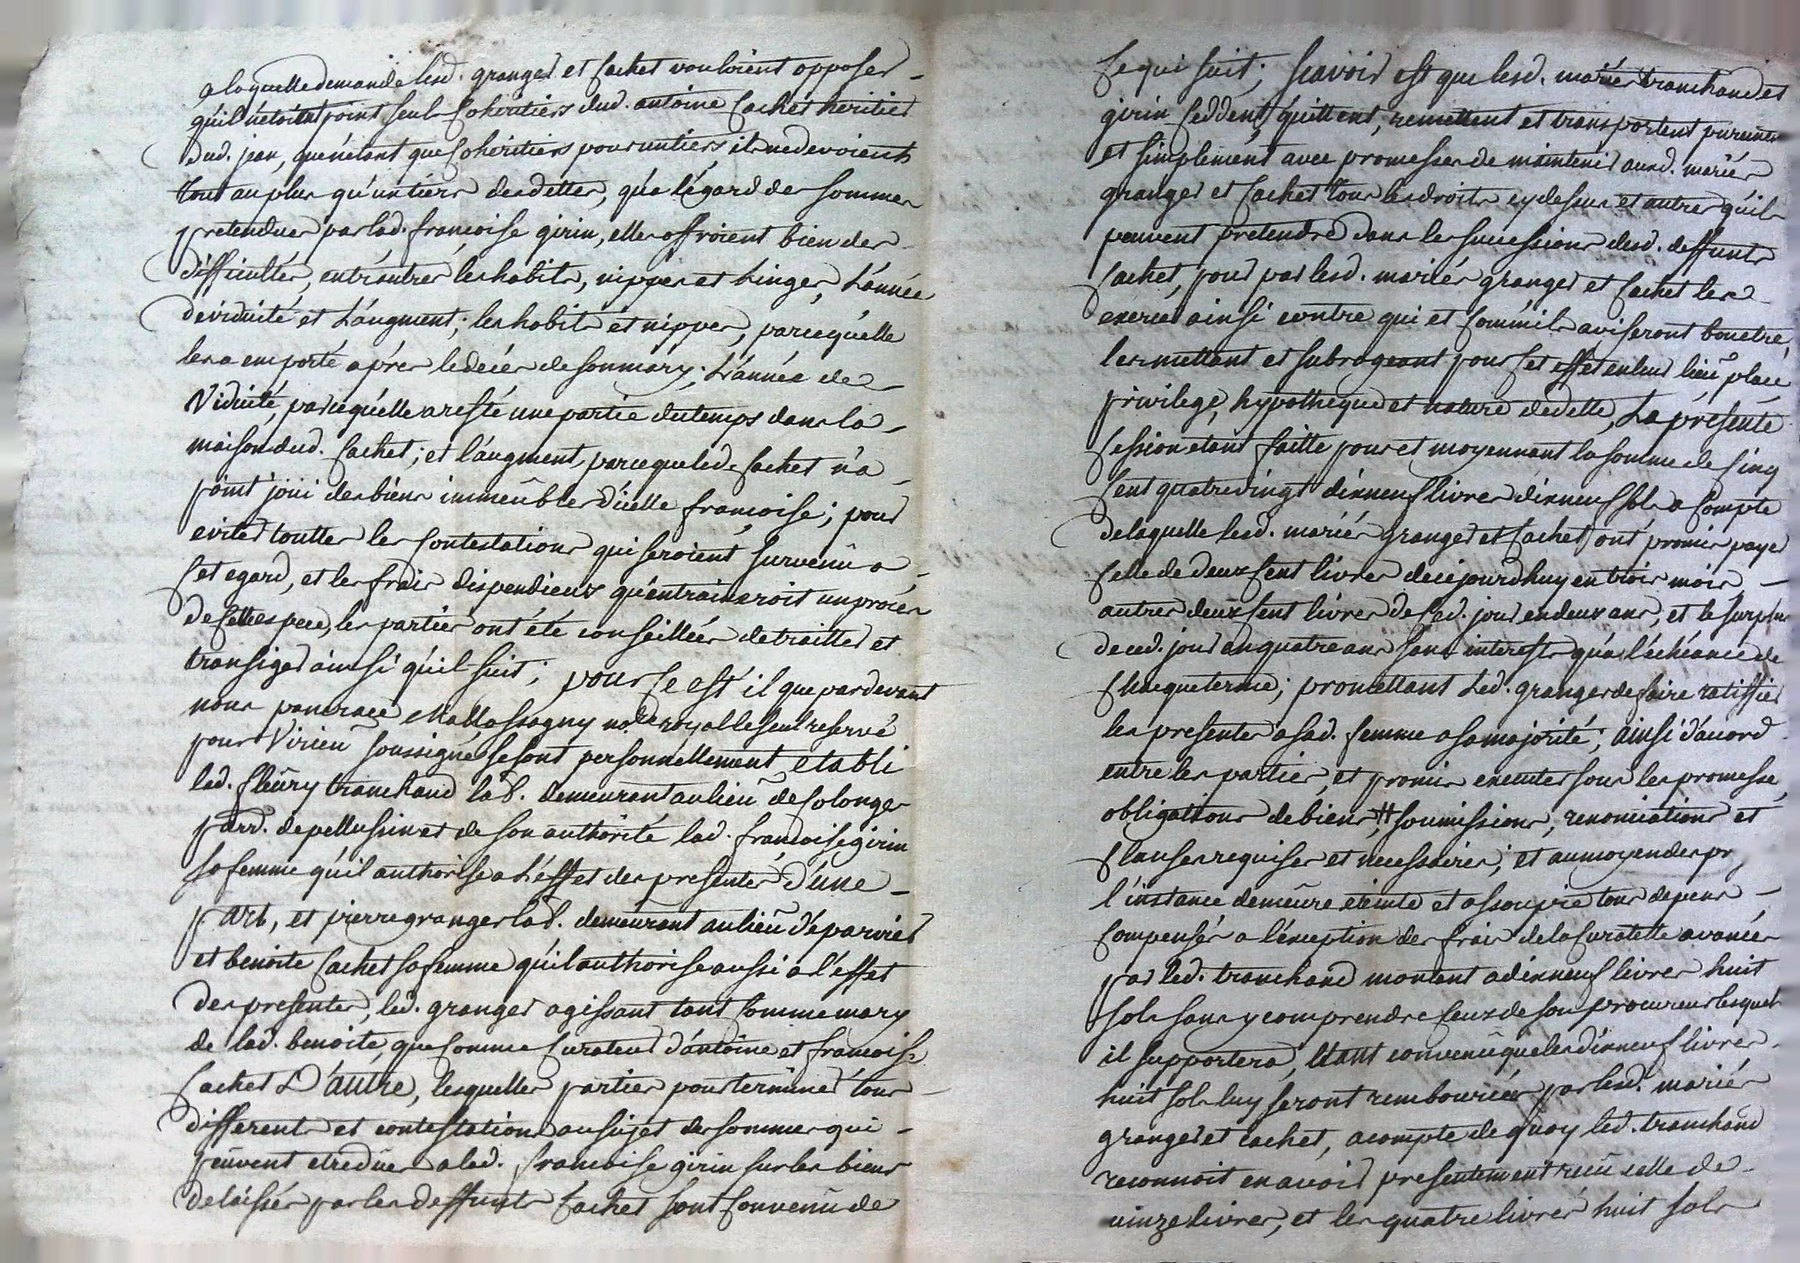 a laquelle demande lesd. granger et Cachet vouloient opposer
quil n'etoient point seuls Coheritiers dud. antoine Cachet heritier
dud. jean, que n'etant que Coheritiers pour un tiers ils ne devoient
tout au plus qu'un tiers des dettes, qu'a l'égard des sommes
pretendues par lad. francoise girin, elles offroient bien des
difficultés, entr'autres les habits, nippes et linges, L'année
de viduité et L'augment; les habits et nippes, parcequ'elle
les a emporté aprés le decés de son mary; L'année de
Viduité, parcequ'elle a resté une partie du temps dans la
maison dud. Cachet; et l'augment, parceque led. Cachet n'a
point joüi des biens immeubles d'icelle francoise; pour
eviter touttes les Contestations qui seroient survenû a
Cet egard, et les frais dispendieux qu'entraineroit un procés
de Cette espece, les parties ont été conseillées de traitter et
transiger ainsi qu'il suit; pour Ce est il que pardevant
nous pancrace Mallassagny no.re royal le seul reservé
pour Virieu soussigné se sont personnellement etabli
led. fleury tranchand lab. demeurant au lieu de Solonge
parr. de pellussin et de son authorité lad. francoise girin
sa femme qu'il authorise a L'effet des presentes D'une
part, et pierre granger lab. demeurant au lieu d'éparvier
et benoite Cachet sa femme qu'il authorise aussi a l'effet
des presentes, led. granger agissant tant Comme mary
de lad. benoite, que Comme Curateur d'antoine et francoise
Cachet D'autre, lesquelles parties pour terminer tous
differents et contestations au sujet des sommes qui
peuvent etre dües a lad. francoise girin sur les biens
delaissés par les deffunts Cachet sont Convenû de
Ce qui suit; scavoir est que lesd. mariés tranchand et
girin Ceddent, quittent, remettent et transportent purement
et simplement avec promesses de maintenir auxd. mariés
granger et Cachet tous les droits cy dessus et autres qu'ils
peuvent pretendre dans les successions desd. deffunts
Cachet, pour par lesd. mariés granger et Cachet les
exercer ainsi contre qui et Comm'ils aviseront bon etre,
les mettant et subrogeant pour Cet effet en leur lieu, place
privilege, hypotheque et nature de dette, La presente
Cession etant faitte pour et moyennant la somme de Cinq
Cent quatre vingt dixneuf livres dixneuf sols a Compte
de laquelle lesd. mariés granger et Cachet ont promis payer
Celle de deux Cent livres de cejourdhuy en trois mois
autres deux Cent livres de Ced. jour en deux ans, et le surplus
de ced. jour en quatre ans sans interests qu'a l'échéance de
Chaque terme; promettant Led. granger de faire ratiffier
les presentes a sad. femme a sa majorité; ainsi d'accord
entre les parties, et promis executer sous les promesse,
obligations de biens, # soumissions, renonciations et
Clauses requises et necessaires; et au moyen des pr.
l'instance demeure eteinte et assoupie tous depens
Compensés a l'exception des frais de la Curatelle avancés
par led. tranchand montant a dixneuf livres huit
sols sans y comprendre Ceux de son procureur lesquels
il supportera, etant convenû que les dixneuf livres
huit sols luy seront remboursées par lesd. mariés
granger et cachet, acompte de quoy led. tranchand
reconnoit en avoir presentement recû celle de
quinze livres, et les quatre livres huit sols